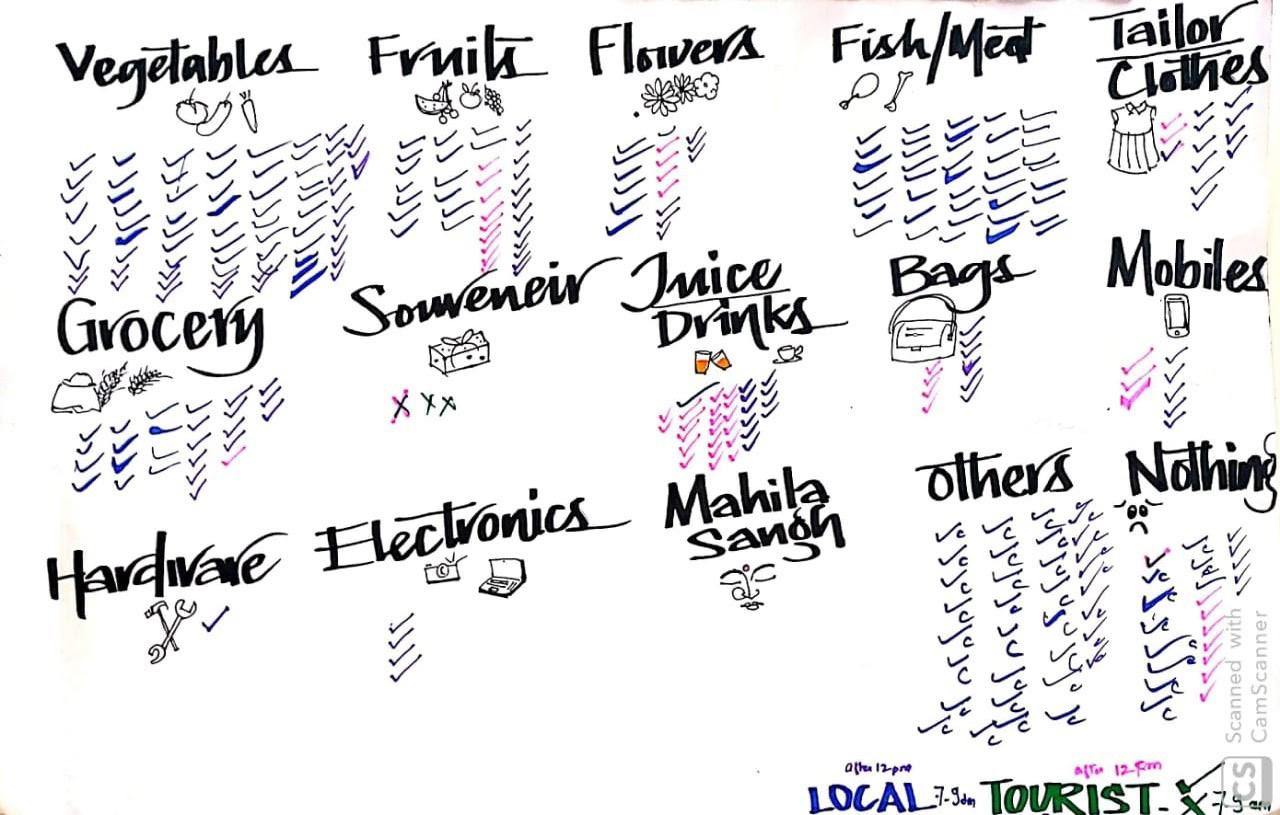 Vegetables
Fruits
Flowers
Fish/Meat
Tailor
Clothes
Grocery
Souveneir
Juice
Drinks
Bags
Mobiles
Hardware
Electronics
Mahila
Sangh
others
Nothing
after 12-pm
LOCAL 7-9am
after 12-pm
TOURIST - X 7-9 am
Scanned with
CamScanner
CS